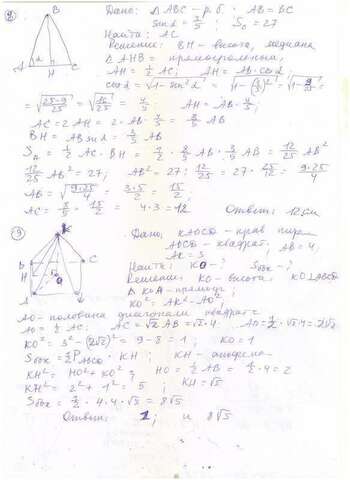 8) B Дано: △ ABC - р.б. AB = BC
sin α = 3/5 ; S△ = 27
Найти: AC
Решение: BH - высота, медиана
A α H C △ AHB - прямоугольный,
AH = 1/2 AC; AH = AB · cos α
cos α = √1 - sin² α = √1 - (3/5)² = √1 - 9/25 =
= √(25-9)/25 = √16/25 = 4/5 ; AH = AB · 4/5 ;
AC = 2AH = 2 · AB · 4/5 = 8/5 AB
BH = AB sin α = 3/5 AB
S△ = 1/2 AC · BH = 1/2 · 8/5 AB · 3/5 AB = 12/25 AB²
12/25 AB² = 27; AB² = 27 : 12/25 = 27 · 25/12 = 9·25/4
AB = √9·25/4 = 3·5/2 = 15/2 ,
AC = 8/5 · 15/2 = 4 · 3 = 12 Ответ: 12 см
9) K Дано: KABCD - прав пир
ABCD - квадрат. AB = 4,
B C AK = 3
H Найти: KO - ? Sбок - ?
O Решение: KO - высота. KO ⊥ ABCD
A △ KOA - прямоуг
KO² = AK² - AO² ;
AO - половина диагонали квадрата
AO = 1/2 AC; AC = √2 AB = √2 · 4, AO = 1/2 · √2 · 4 = 2√2
KO² = 3² - (2√2)² = 9 - 8 = 1 ; KO = 1
Sбок = 1/2 P ABCD · KH ; KH - апофема
KH² = HO² + KO² ; HO = 1/2 AB = 1/2 · 4 = 2
KH² = 2² + 1² = 5 ; KH = √5
Sбок = 1/2 · 4 · 4 √5 = 8√5
Ответ: 1; и 8√5